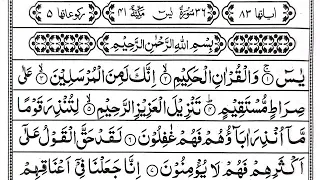 اٰیاتها ۸۳ ۳۶ سُوْرَةُ یٰسٓ مَكِّیَّةٌ ۴۱ رکوعاتها ۵
بِسْمِ اللّٰهِ الرَّحْمٰنِ الرَّحِیْمِ
یٰسٓ ۚ﴿۱﴾ وَالْقُرْاٰنِ الْحَكِیْمِ ۙ﴿۲﴾ اِنَّكَ لَمِنَ الْمُرْسَلِیْنَ ۙ﴿۳﴾ عَلٰی
صِرَاطٍ مُّسْتَقِیْمٍ ؕ﴿۴﴾ تَنْزِیْلَ الْعَزِیْزِ الرَّحِیْمِ ۙ﴿۵﴾ لِتُنْذِرَ قَوْمًا
مَّاۤ اُنْذِرَ اٰبَآؤُهُمْ فَهُمْ غٰفِلُوْنَ ﴿۶﴾ لَقَدْ حَقَّ الْقَوْلُ عَلٰۤی
اَكْثَرِهِمْ فَهُمْ لَا یُؤْمِنُوْنَ ﴿۷﴾ اِنَّا جَعَلْنَا فِیْۤ اَعْنَاقِهِمْ